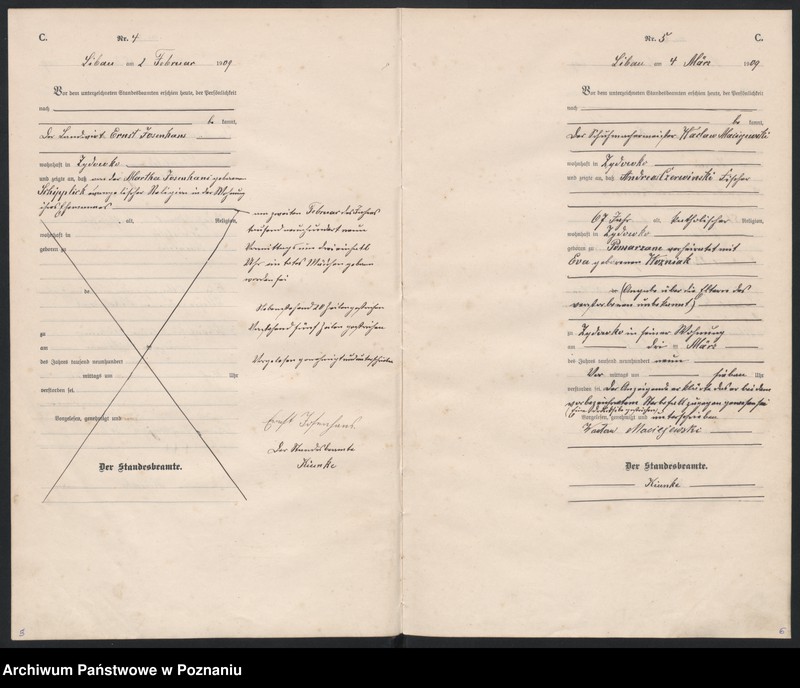 C.
Nr. 4
Libau am 2 Februar 1909
Vor dem unterzeichneten Standesbeamten erschien heute, der Persönlichkeit
nach
be kannt,
Der Landwirt Ernst Isenhans
wohnhaft in Zydowko
und zeigte an, daß von der Martha Isenhans geborenen
evangelischer Religion in der Wohnung
ihres Ehemannes
alt, Religion,
wohnhaft in
geboren zu
zu
am
des Jahres tausend neunhundert
mittags um Uhr
verstorben sei.
Vorgelesen, genehmigt und
Der Standesbeamte.
am zweiten Februar des Jahres
tausend neunhundert neun
Vormittags um drei einhalb
Uhr ein totes Mädchen geboren
worden sei
Nebenstehend 20 Zeilen gestrichen
Vorstehend fünf Zeilen gestrichen
Vorgelesen genehmigt und unterschrieben
Ernst Isenhans
Der Standesbeamte
5
Nr. 5
C.
Libau am 4 März 1909
Vor dem unterzeichneten Standesbeamten erschien heute, der Persönlichkeit
nach
be kannt,
Der Schuhmachermeister Waclaw Maciejewski
wohnhaft in Zydowko
und zeigte an, daß Andreas Czerwinski
67 Jahr alt, katholischer Religion,
wohnhaft in Zydowko
geboren zu Pomarzane verheiratet mit
Eva geborenen Wozniak
(Angabe über die Eltern des
verstorbenen unbekannt)
zu Zydowko in seiner Wohnung
am drei ten März
des Jahres tausend neunhundert neun
Vor mittags um sieben Uhr
verstorben sei. Der Anzeigende erklärte daß er bei dem
vorbezeichneten Sterbefall zugegen gewesen sei
Vorgelesen, genehmigt und unterschrieben
Waclaw Maciejewski
Der Standesbeamte.
6
Archiwum Państwowe w Poznaniu